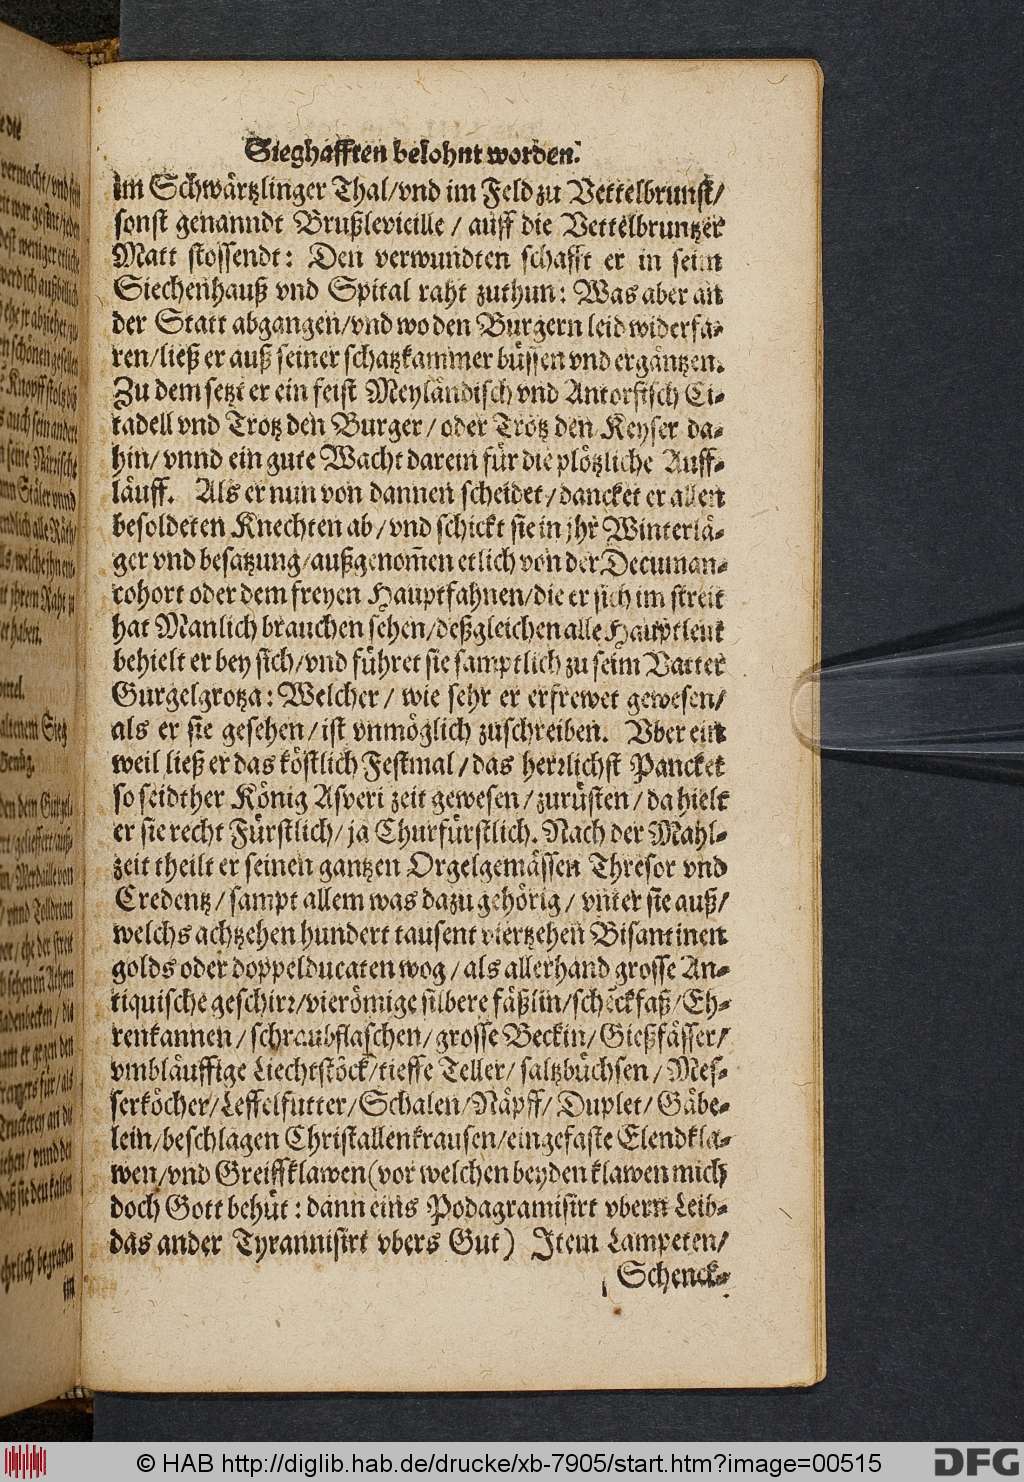 Sieghafften belohnt worden.
im Schwärtzlinger Thal/vnd im Feld zu Vettelbrunst/
sonst genanndt Brußlevieille / auff die Vettelbruntzer
Matt stossendt: Den verwundten schafft er in seim
Siechenhauß vnd Spital raht zuthun: Was aber an
der Statt abgangen/vnd wo den Burgern leid widerfa-
ren/ließ er auß seiner schatzkammer büssen vnd ergäntzen.
Zu dem setzt er ein feist Meyländisch vnd Antorfisch Ci-
tadell vnd Trotz den Burger/ oder Trotz den Keyser da-
hin/ vnnd ein gute Wacht darein für die plötzliche Auff-
läuff. Als er nun von dannen scheidet/dancket er allen
besoldeten Knechten ab/vnd schickt sie in jhr Winterlä-
ger vnd besatzung/außgenom̃en etlich von der Decuman-
cohort oder dem freyen Hauptfahnen/die er sich im streit
hat Manlich brauchen sehen/deßgleichen alle Hauptleut
behielt er bey sich/vnd führet sie samptlich zu seim Vatter
Gurgelgrotza: Welcher/ wie sehr er erfrewet gewesen/
als er sie gesehen/ist vnmöglich zuschreiben. Vber ein
weil ließ er das köstlich Festmal/das herrlichst Pancket
so seidther König Asveri zeit gewesen/zurüsten/da hielt
er sie recht Fürstlich/ja Churfürstlich. Nach der Mahl-
zeit theilt er seinen gantzen Orgelgemässen Thresor vnd
Credentz/sampt allem was dazu gehörig/ vnter sie auß/
welchs achtzehen hundert tausent viertzehen Bisantinen
golds oder doppelducaten wog/als allerhand grosse An-
tiquische geschirr/vierömige silbere fäßlin/schẽckfaß/Eh-
renkannen/schraubflaschen/grosse Beckin/Gießfässer/
vmbläuffige Liechtstöck/tieffe Teller/ saltzbüchsen/Mes-
serköcher/Leffelfutter/Schalen/Näpff/ Duplet/ Gäbe-
lein/beschlagen Christallenkrausen/eingefaste Elendkla-
wen/vnd Greiffklawen(vor welchen beyden klawen mich
doch Gott behüt: dann eins Podagramisirt vbern Leib-
das ander Tyrannisirt vbers Gut) Item Lampeten/
Schenck-
© HAB http://diglib.hab.de/drucke/xb-7905/start.htm?image=00515
DFG